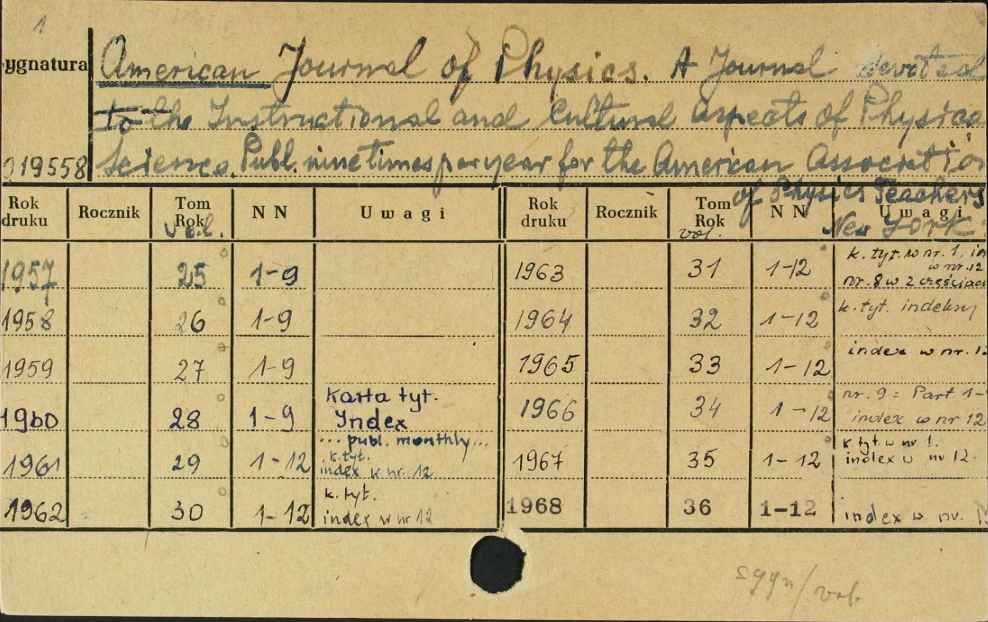 1
ygnatura American Journal of Physics. A Journal devoted
to the Instructional and Cultural Aspects of Physica
019558 Science. Publ. nine times per year for the American Association
of Physics Teachers
New York
Rok druku Rocznik Tom Rok NN Uwagi Rok druku Rocznik Tom Rok NN Uwagi
vol. vol.
1957 25 1-9
1958 26 1-9
1959 27 1-9
1960 28 1-9 Karta tyt. Index
1961 29 1-12 ... publ. monthly... k. tyt. index w nr. 12
1962 30 1-12 k. tyt. index w nr 12
1963 31 1-12 k. tyt. w nr. 1, in w nr. 12 nr. 8 w 2 częściac
1964 32 1-12 k. tyt. indeksy
1965 33 1-12 index w nr. 12
1966 34 1-12 nr. 9 = Part 1- index w nr 12
1967 35 1-12 k. tyt. w nr. 1. index w nr 12.
1968 36 1-12 index w nr.